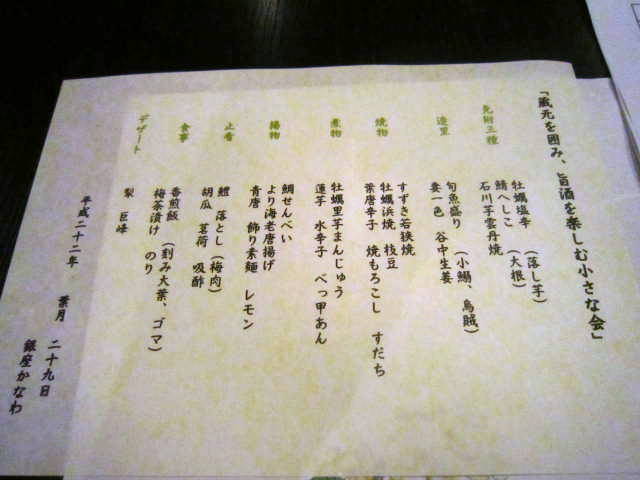 「蔵元を囲み、旨酒を楽しむ小さな会」
先附三種
牡蠣塩辛　（落し芋）
鯖へしこ　（大根）
石川芋雲丹焼
造里
旬魚盛り　（小鰯、烏賊）
妻一色　谷中生姜
焼物
すずき若狭焼
牡蠣浜焼　枝豆
葉唐辛子　焼もろこし　すだち
煮物
牡蠣里芋まんじゅう
蓮芋　水辛子　べっ甲あん
揚物
鯛せんべい
より海老唐揚げ
青唐　飾り素麺　レモン
止肴
鱧　落とし（梅肉）
胡瓜　茗荷　吸酢
食事
香煎飯　（刻み大葉、ゴマ）
梅茶漬け　のり
デザート
梨　巨峰
平成二十二年　葉月　二十九日
銀座かなわ